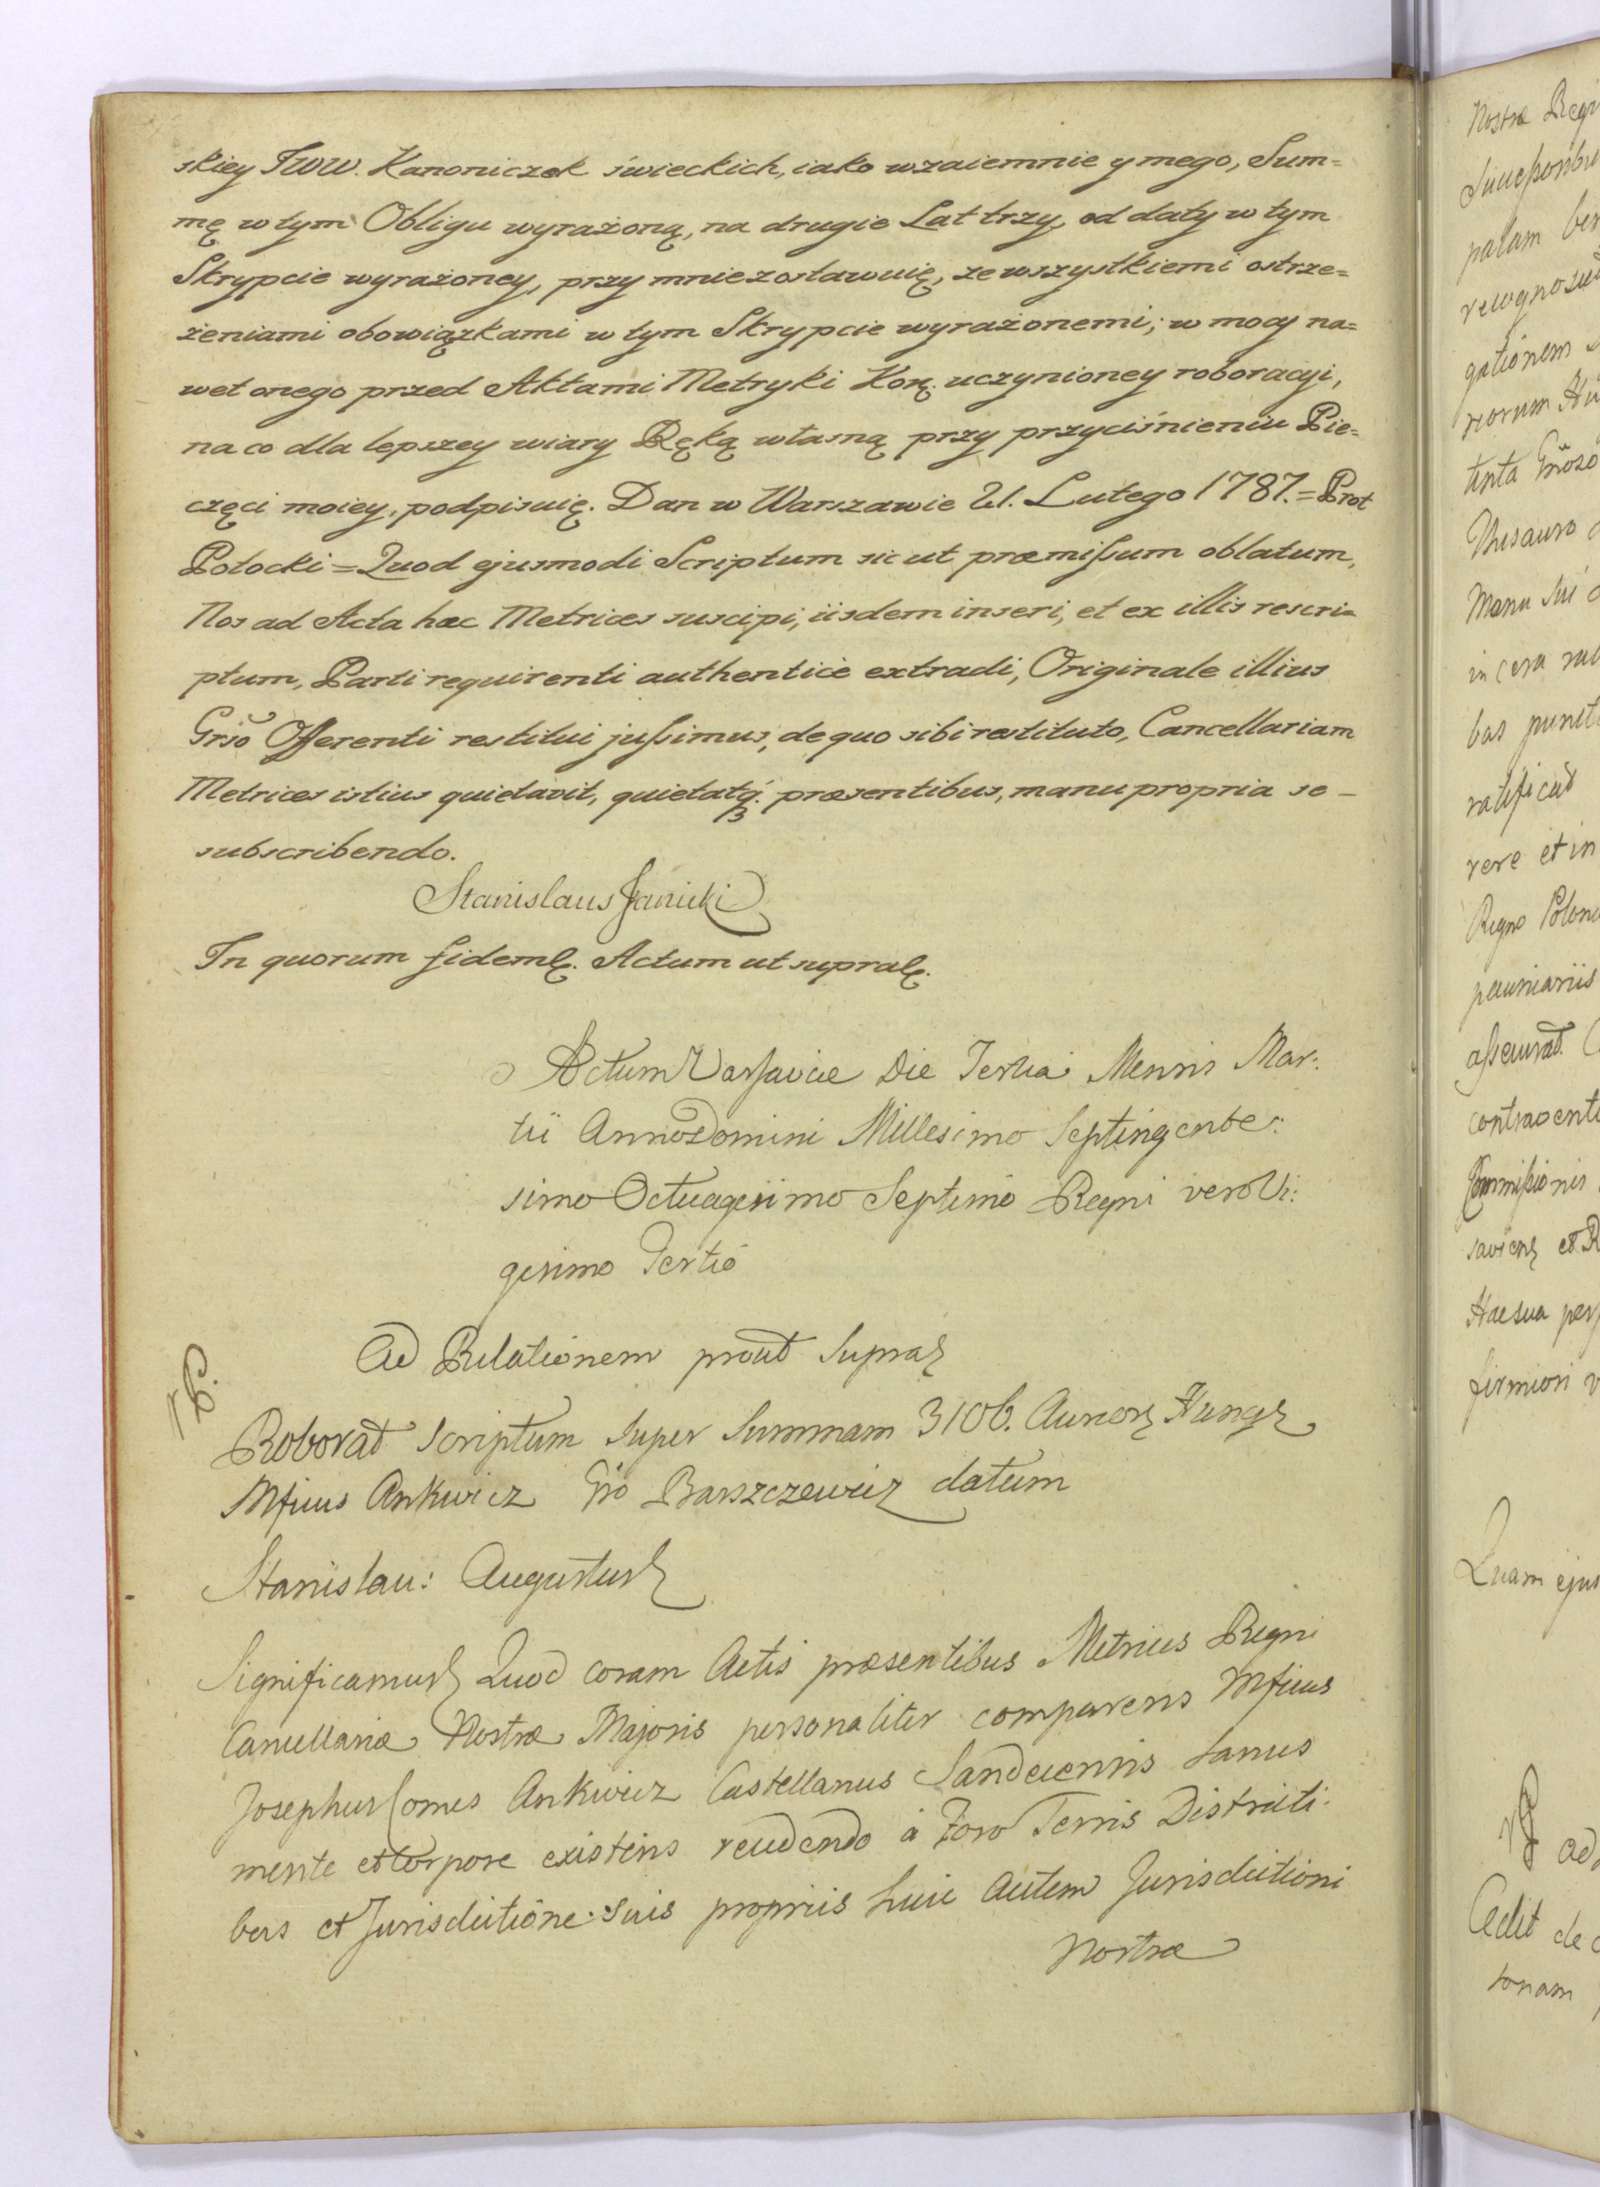 skiey JWW. Kanoniczek świeckich, iako wzaiemnie y mego, Sum=
mę w tym Obligu wyrażoną, na drugie Lat trzy, od daty w tym
Skrypcie wyrażoney, przy mnie zostawuię, ze wszystkiemi ostrze=
żeniami obowiązkami w tym Skrypcie wyrażonemi; w mocy na=
wet onego przed Aktami Metryki Korą. uczynioney roboracyi,
na co dla lepszey wiary Ręką własną przy przyciśnieniu Pie=
częci moiey, podpisuię. Dan w Warszawie 21. Lutego 1787. = Prot
Potocki = Quod ejusmodi Scriptum sic ut præmissum oblatum,
Nos ad Acta hæc Metrices suscipi, iisdem inseri, et ex illis rescri=
ptum, Parti requirenti authentice extradi, Originale illius
Grso Offerenti restitui jussimus, de quo sibi restituto, Cancellariam
Metrices istius quietavit, quietatq3. præsentibus, manu propria se-
subscribendo.
Stanislaus Janicki
In quorum fidem. Actum ut supra.
Actum Varsaviæ Die Tertia Mensis Mar:
tii Anno Domini Millesimo Septingente:
simo Octuagesimo Septimo Regni vero Vi:
gesimo Tertio
Ad Relationem prout Supra
Roborat Scriptum super Summam 3106. Aureor Hung
Mficus Ankwicz Gso Barszczewicz datum
Stanislau: August
Significamus Quod coram Actis præsentibus Metrices Regni
Cancellariæ Nostræ Majoris personaliter comparens Mficus
Josephus Comes Ankwicz Castellanus Sandecensis sanus
mente et corpore existens recedendo à Foro Terris Districti:
bus et Jurisdictione suis propriis huic autem Jurisdictioni
Nostræ
Nostræ
param
gationem
Thesauro
Manu Sui
in cera
ratificat
vere et in
Regno
pecuniariis
Commissionis
Hac sua
firmiori
Quam
de